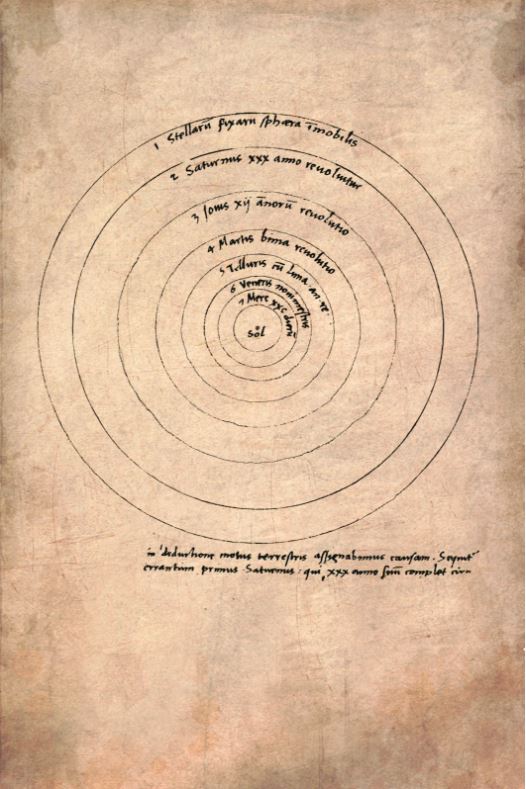 1 Stellarū fixarū sphæra īmobilis
2 Saturnus xxx anno revoluitur
3 Jouis xij annorū reuolutio
4 Martis bima reuolutio
5 Telluris cū luna an. re.
6 Veneris nonimestris
7 Merc xxc dierū
Sol
in deductione motus terrestris assignabimus causam. Sequit
errantium primus Saturnus: qui xxx anno suū complet circu